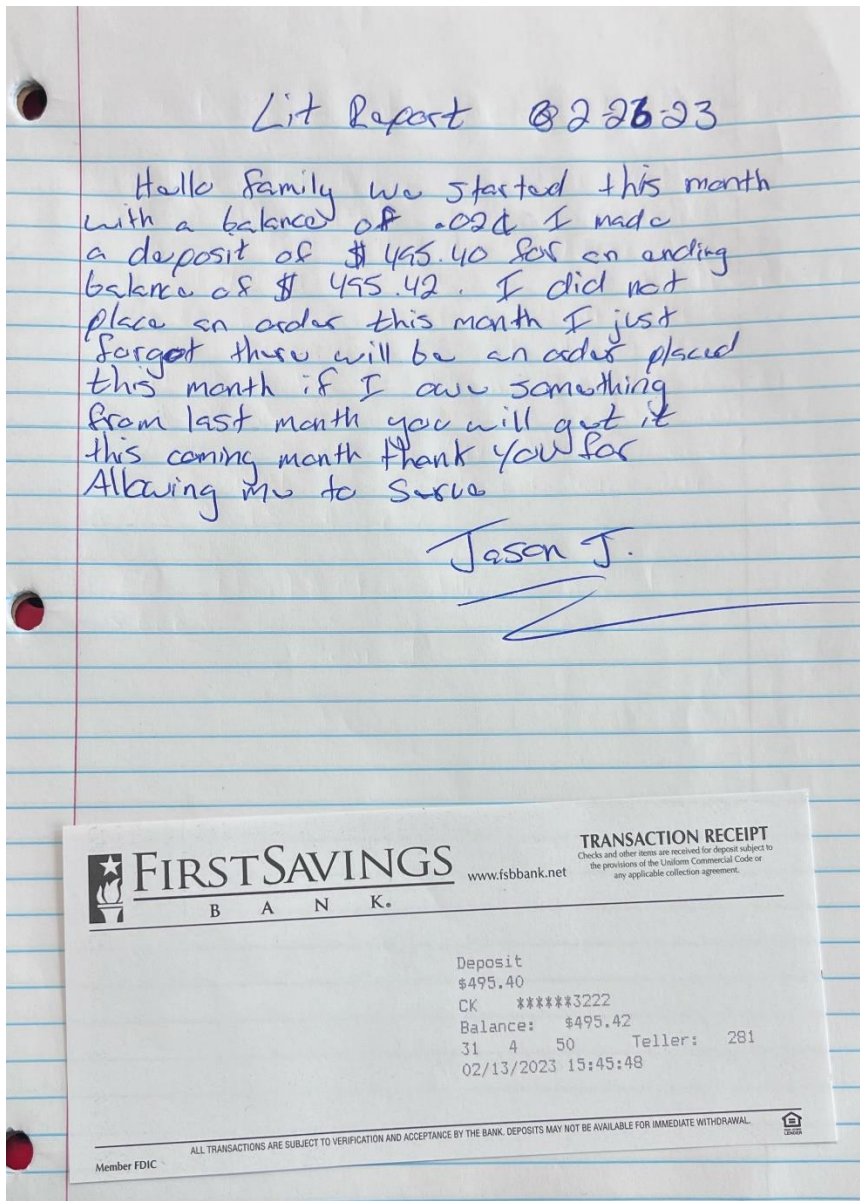 Lit Report 02-26-23
Hello family we started this month
with a balance of .02¢ I made
a deposit of $ 495.40 for an ending
balance of $ 495.42. I did not
place an order this month I just
forgot there will be an order placed
this month if I owe something
from last month you will get it
this coming month thank you for
Allowing me to Serve
Jason J.
FIRST SAVINGS
BANK.
www.fsbbank.net
TRANSACTION RECEIPT
Checks and other items are received for deposit subject to
the provisions of the Uniform Commercial Code or
any applicable collection agreement.
Deposit
$495.40
CK ******3222
Balance: $495.42
31 4 50 Teller: 281
02/13/2023 15:45:48
ALL TRANSACTIONS ARE SUBJECT TO VERIFICATION AND ACCEPTANCE BY THE BANK. DEPOSITS MAY NOT BE AVAILABLE FOR IMMEDIATE WITHDRAWAL.
Member FDIC